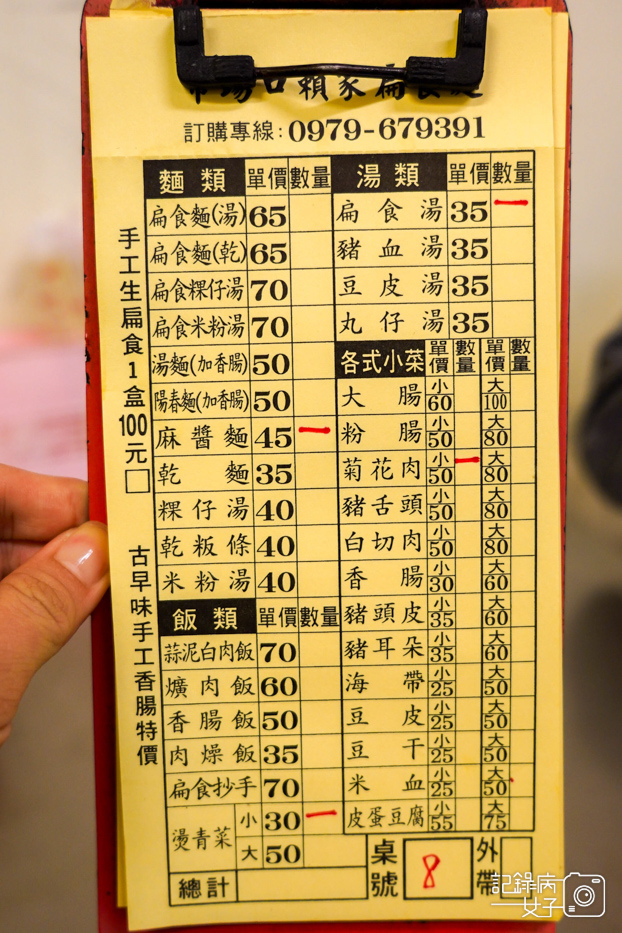 市場口賴家扁食麵
訂購專線:0979-679391
手工生扁食1盒100元□
古早味手工香腸特價
麵類 單價 數量
扁食麵(湯) 65
扁食麵(乾) 65
扁食粿仔湯 70
扁食米粉湯 70
湯麵(加香腸) 50
陽春麵(加香腸) 50
麻醬麵 45 一
乾麵 35
粿仔湯 40
乾粄條 40
米粉湯 40
飯類 單價 數量
蒜泥白肉飯 70
爌肉飯 60
香腸飯 50
肉燥飯 35
扁食抄手 70
燙青菜 小 30 一
大 50
總計
湯類 單價 數量
扁食湯 35 一
豬血湯 35
豆皮湯 35
丸仔湯 35
各式小菜 單價 數量 單價 數量
大腸 小60 大100
粉腸 小50 大80
菊花肉 小50 一 大80
豬舌頭 小50 大80
白切肉 小50 大80
香腸 小30 大60
豬頭皮 小35 大60
豬耳朵 小35 大60
海帶 小25 大50
豆皮 小25 大50
豆干 小25 大50
米血 小25 大50
皮蛋豆腐 小55 大75
桌號 8 外帶
記錄病
女子